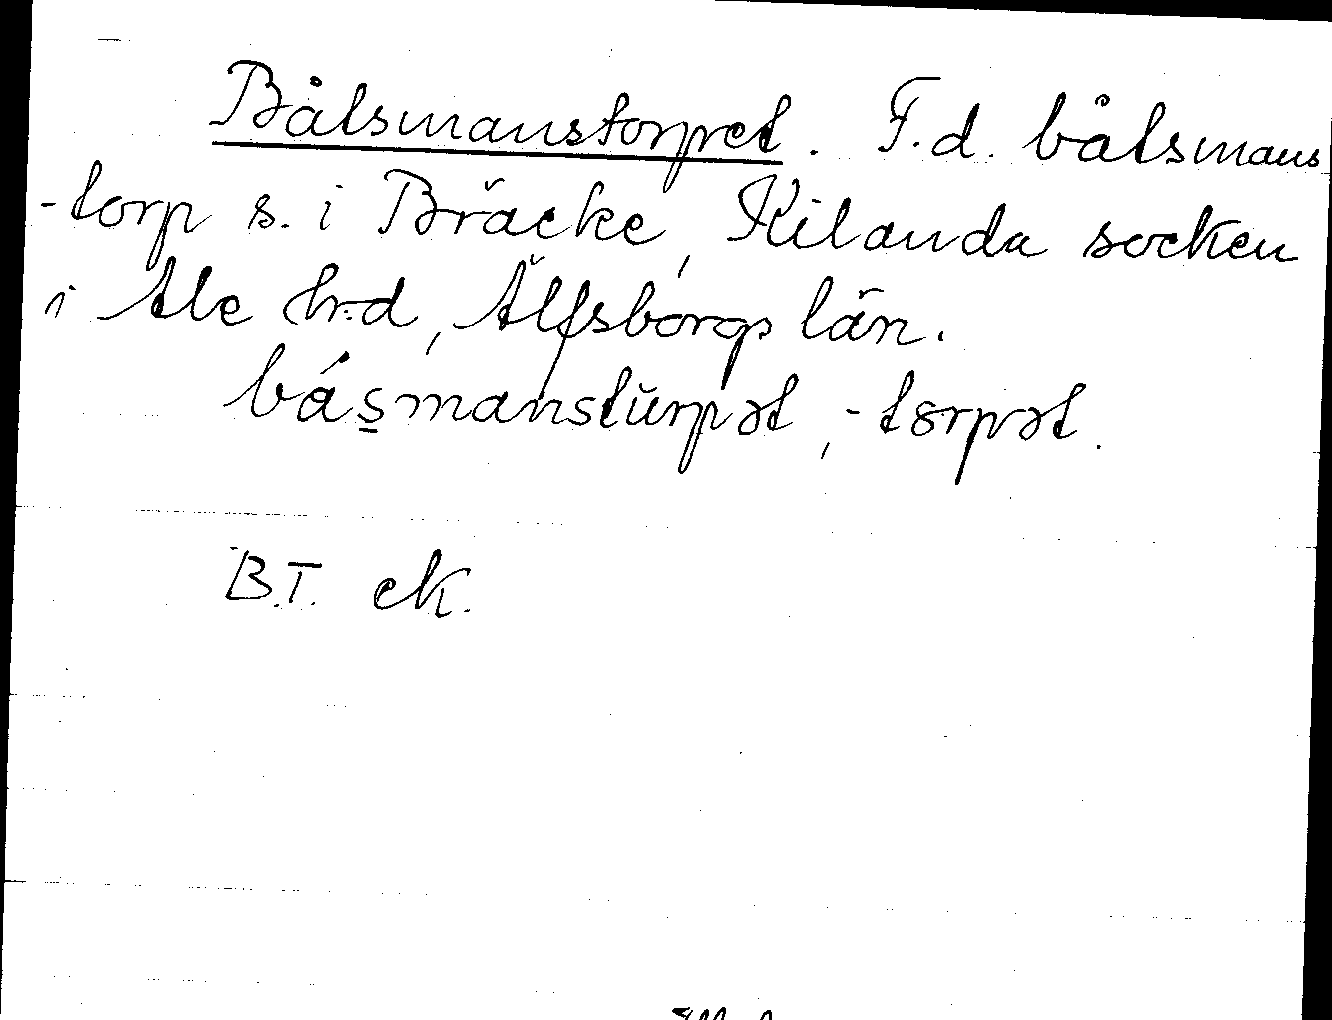 Båtsmanstorpet. F.d. båtsmans
-torp s. i Bräcke, Kilanda socken
i Ale h:d, Älfsborgs län.
bás̱manstŭrpət, -torpət.
B.T. ek.